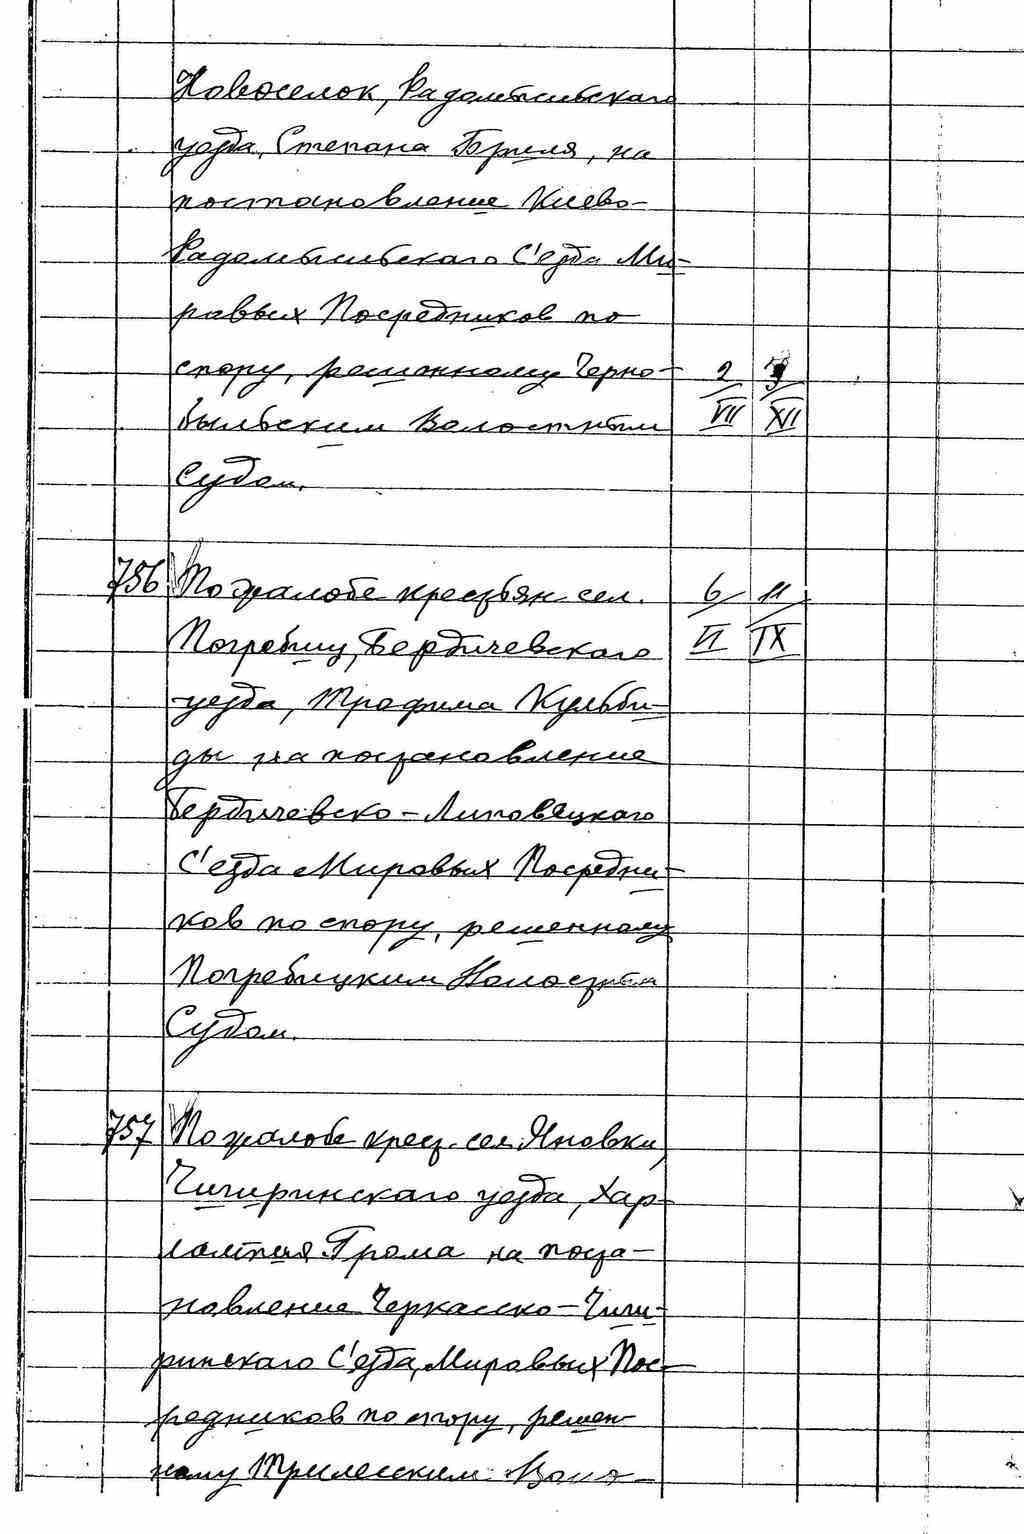 Новоселок, Радомысльскаго
уезда, Степана Бриля, на
постановление Киево-
Радомысльскаго С'езда Ми-
ровых Посредников по
спору, решенному Черно- 2 3
быльским Волостным VII XII
Судом.
756 По жалобе крестьян сел. 6 11
Погребищ, Бердичевскаго VI IX
уезда, Трофима Кульби-
ды на постановление
Бердичевско-Липовецкаго
С'езда Мировых Посредни-
ков по спору, решенному
Погребищским Волостным
Судом.
757 По жалобе крест. сел. Яновки,
Чигиринскаго уезда, Хар-
лампия Грома на поста-
новление Черкасско-Чиги-
ринскаго С'езда Мировых Пос-
редников по спору, решен-
ному Трилесским Воло-